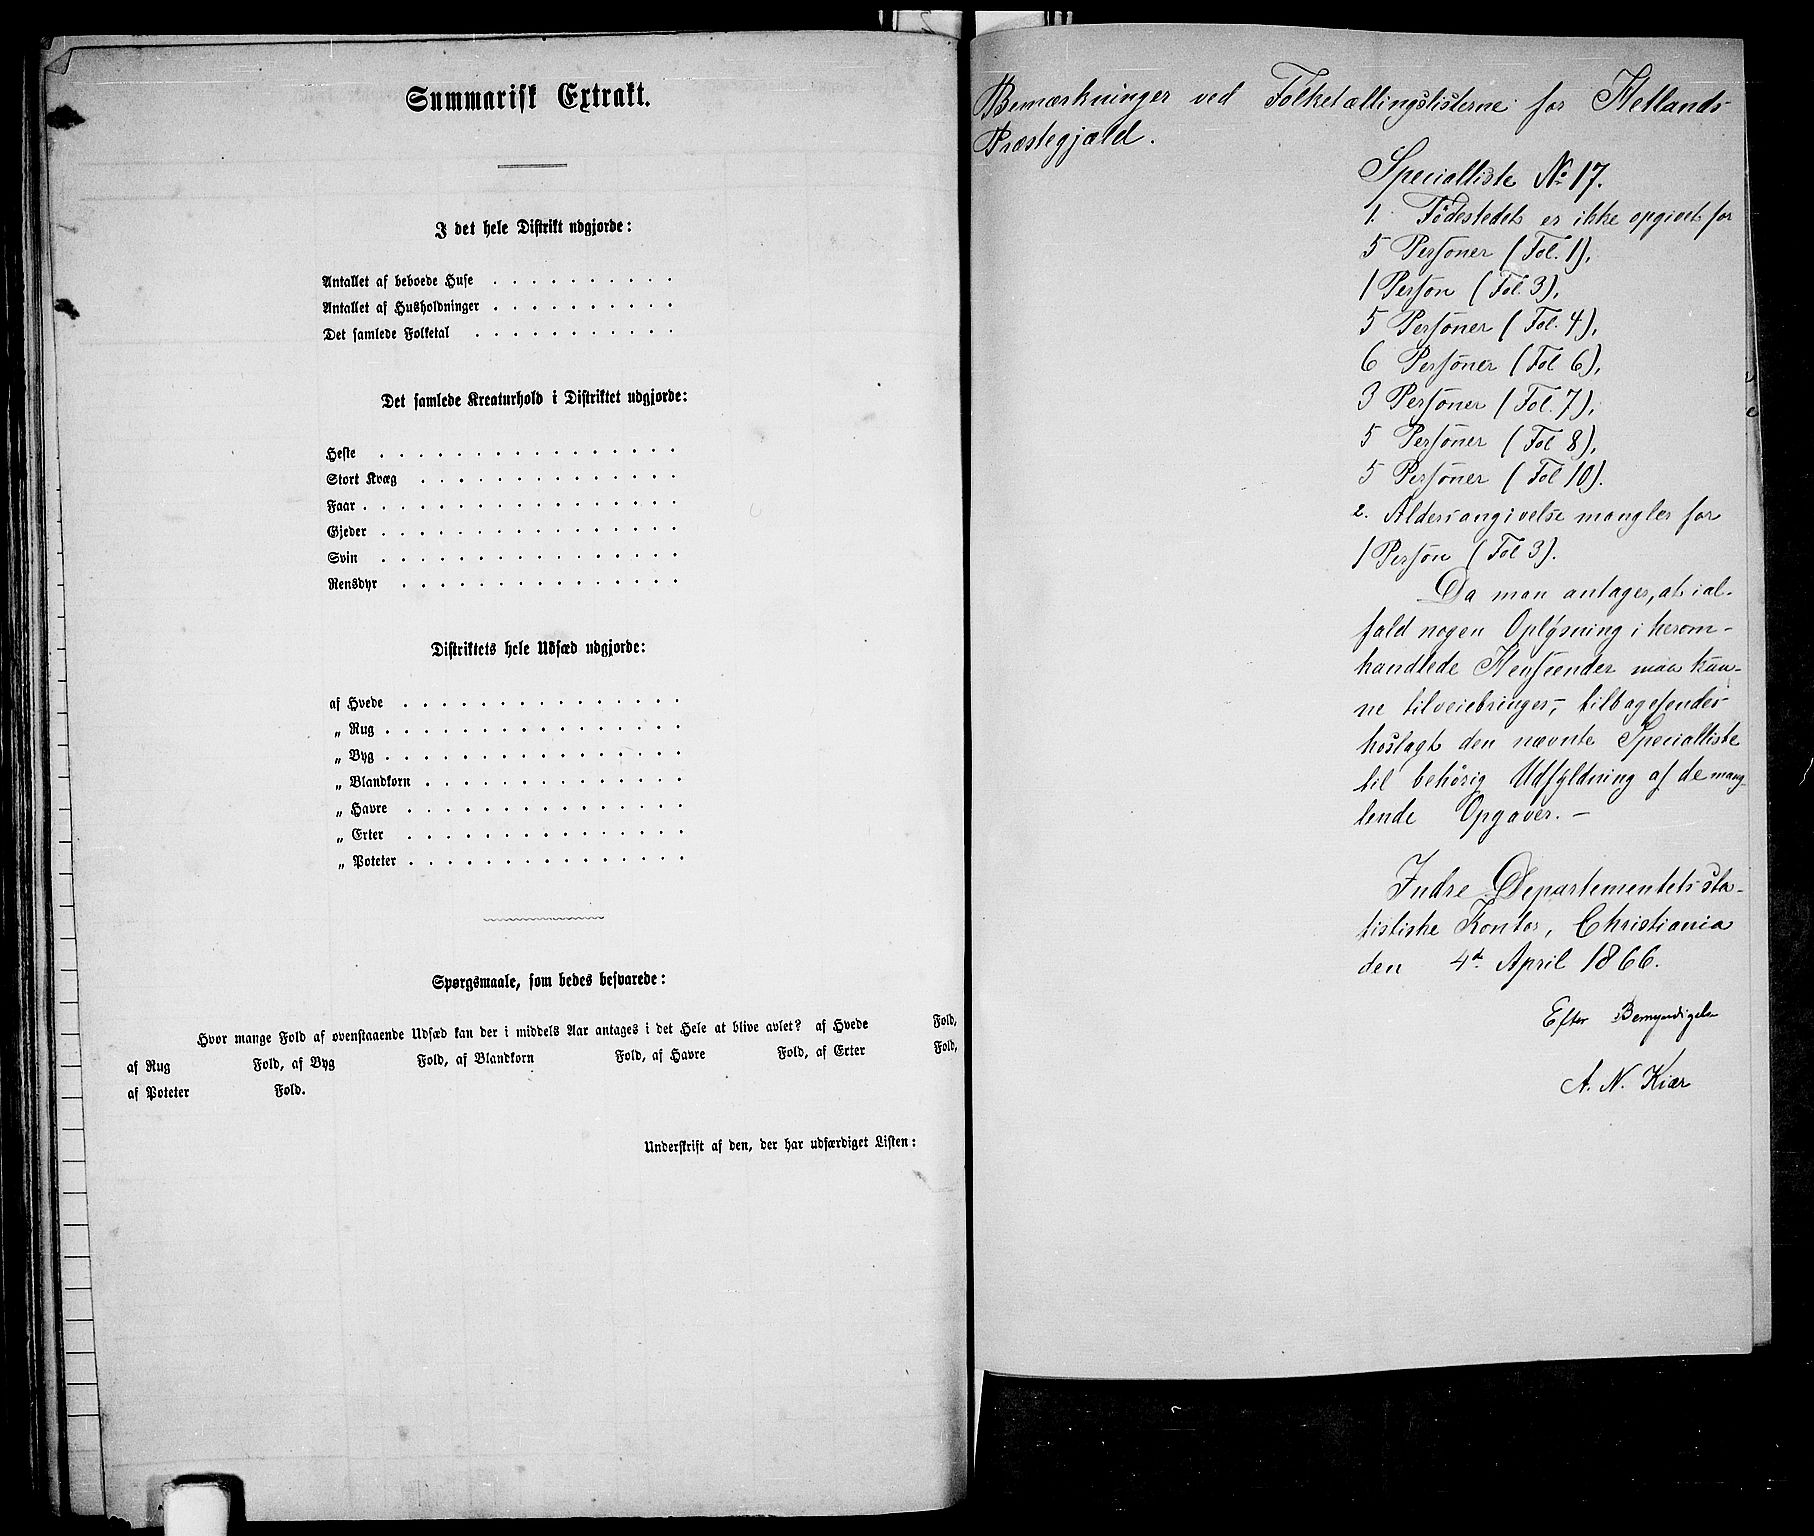 Summarisk Extrakt.
I det hele Distrikt udgjorde:
Antallet af beboede Huse . . . . . . . . . .
Antallet af Husholdninger . . . . . . . . . .
Det samlede Folketal . . . . . . . . . . .
Det samlede Kreaturhold i Distriktet udgjorde:
Heste . . . . . . . . . . . . . . . .
Stort Kvæg . . . . . . . . . . . . . .
Faar . . . . . . . . . . . . . . . . .
Gjeder . . . . . . . . . . . . . . . .
Svin . . . . . . . . . . . . . . . .
Rensdyr . . . . . . . . . . . . . . .
Distriktets hele Udsæd udgjorde:
af Hvede . . . . . . . . . . . . . . .
„ Rug . . . . . . . . . . . . . . . .
„ Byg . . . . . . . . . . . . . . . .
„ Blandkorn . . . . . . . . . . . . . .
„ Havre . . . . . . . . . . . . . . .
„ Erter . . . . . . . . . . . . . . .
„ Poteter . . . . . . . . . . . . . . .
Spørgsmaale, som bedes besvarede:
Hvor mange Fold af ovenstaaende Udsæd kan der i middels Aar antages i det Hele at blive avlet? af Hvede Fold,
af Rug Fold, af Byg Fold, af Blandkorn Fold, af Havre Fold, af Erter Fold,
af Poteter Fold.
Underskrift af den, der har udfærdiget Listen:
Bemærkninger ved Folketællingslisterne for Hetlands
Præstegjæld.
Specialliste No 17.
1. Födestedet er ikke opgivet for
5 Personer (Fol. 1),
1 Person (Fol. 3),
5 Personer (Fol. 4),
6 Personer (Fol 6),
3 Personer (Fol. 7),
5 Personer (Fol 8),
5 Personer (Fol 10).
2. Aldersangivelse mangler for
1 Person (Fol 3).
Da man antager, at ial-
fald nogen Oplysning i herom-
handlede Henseender maa kun-
ne tilveiebringes, tilbagesendes
hoslagt den nævnte Specialliste
til behörig Udfyldning af de mang-
lende Opgaver. -
Indre Departementets sta-
tistiske Kontor, Christiania
den 4d. April 1866.
Efter Bemyndigelse
A. N. Kiær